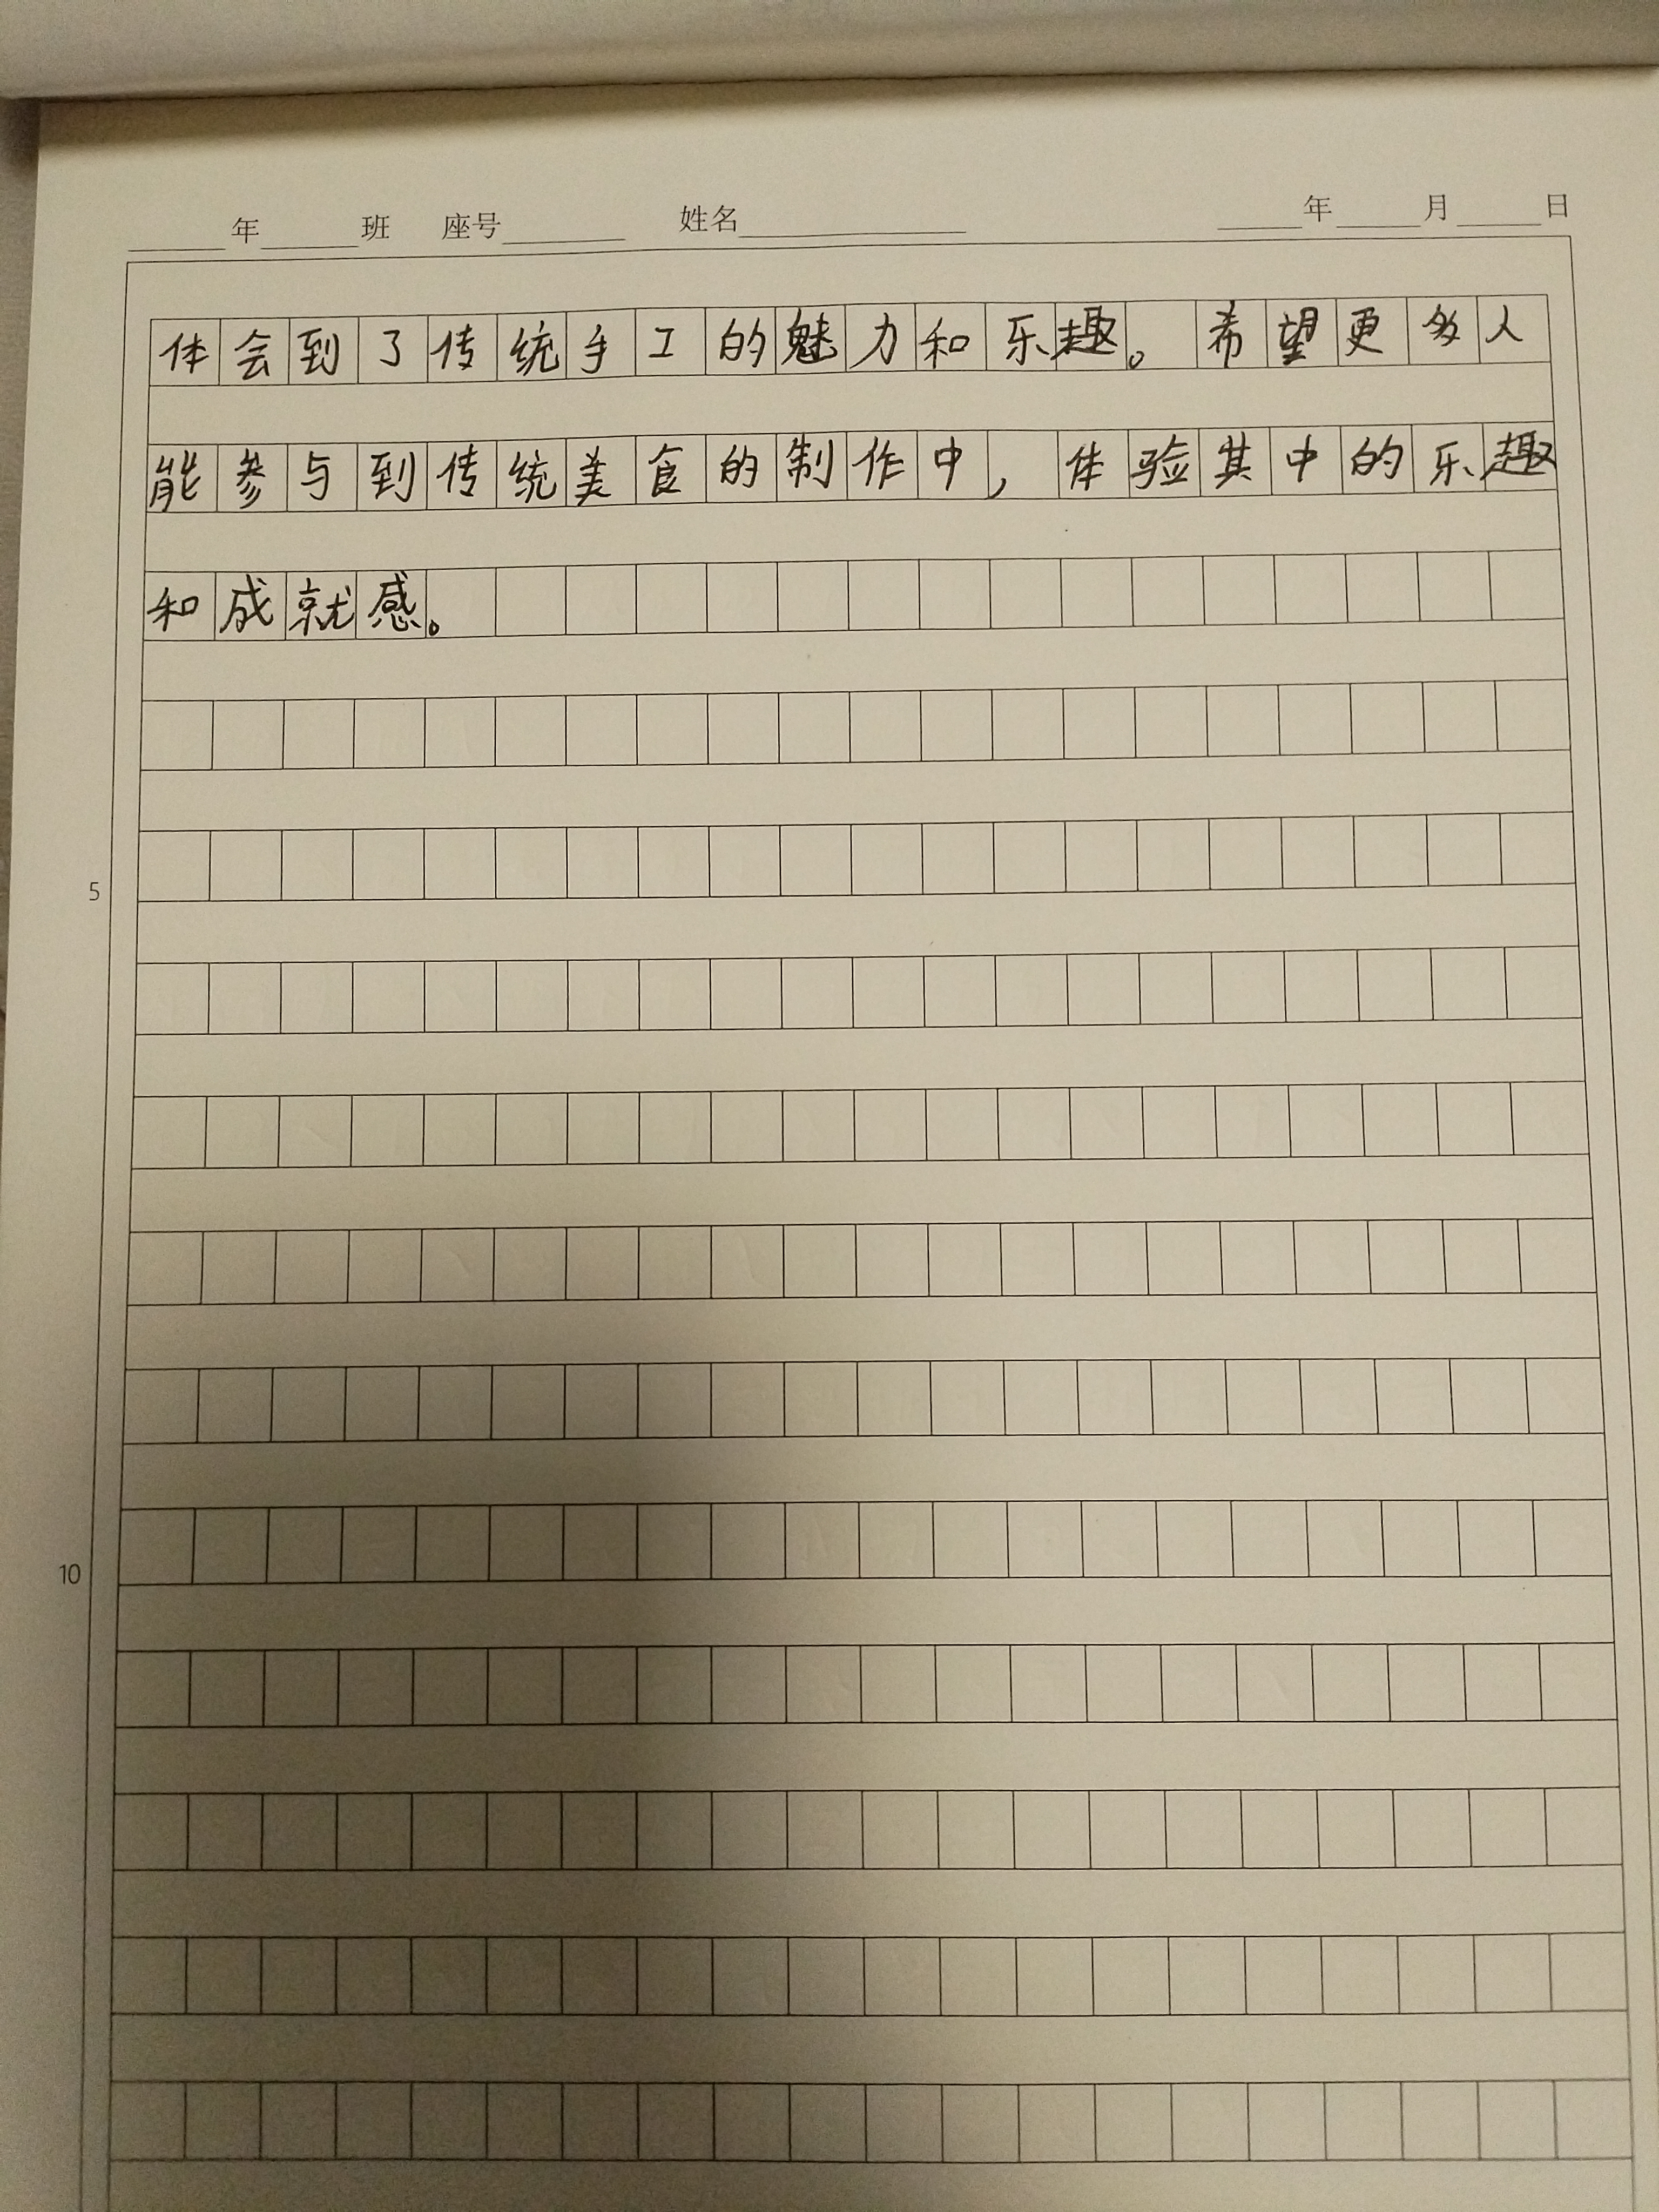 ____年____班 座号____ 姓名____ ____年____月____日
体会到了传统手工的魅力和乐趣。希望更多人
能参与到传统美食的制作中，体验其中的乐趣
和成就感。
5
10